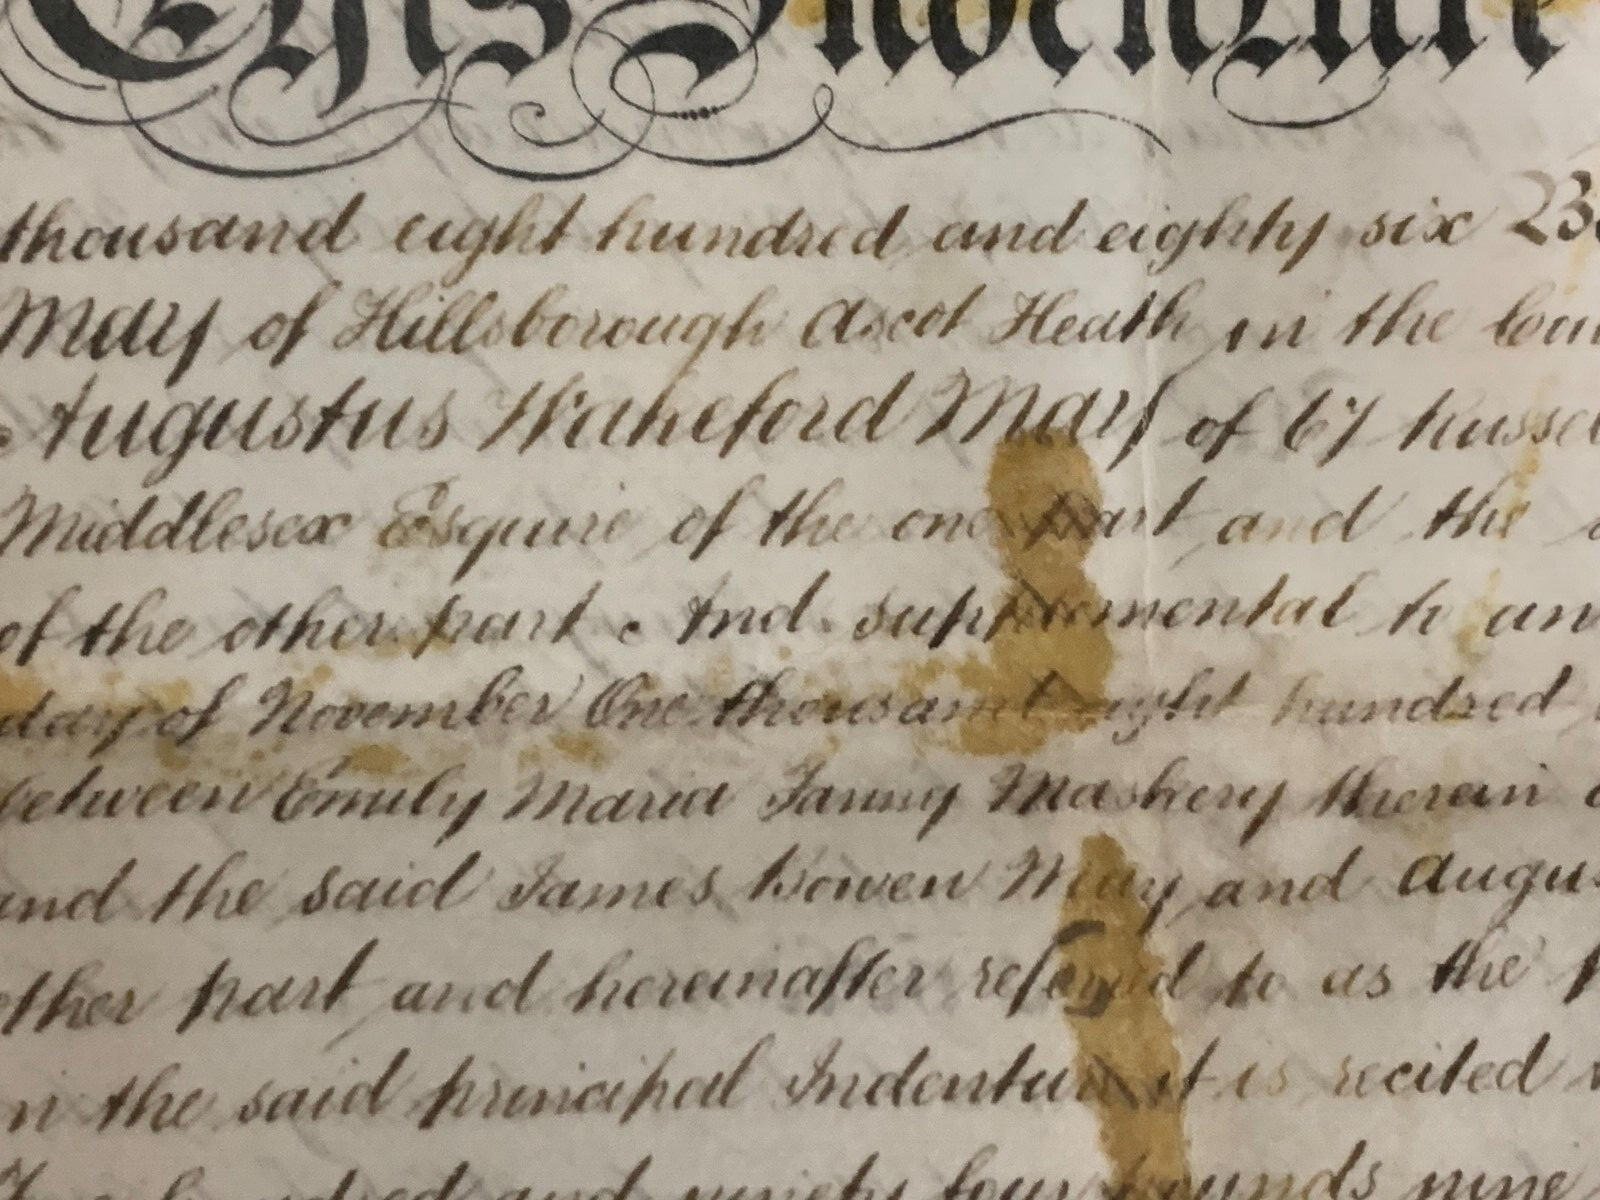 This Indenture
thousand eight hundred and eighty six
May of Hillsborough Ascot Heath in the Coun
Augustus Wakeford May of 67 Russel
Middlesex Esquire of the one part and the
of the other part And supplemental to an
day of November One thousand eight hundred
between Emily Maria Fanny Maskery therein
and the said James Bowen May and Augus
other part and hereinafter referred to as the p
in the said principal Indenture it is recited
hundred and ninety four pounds nine